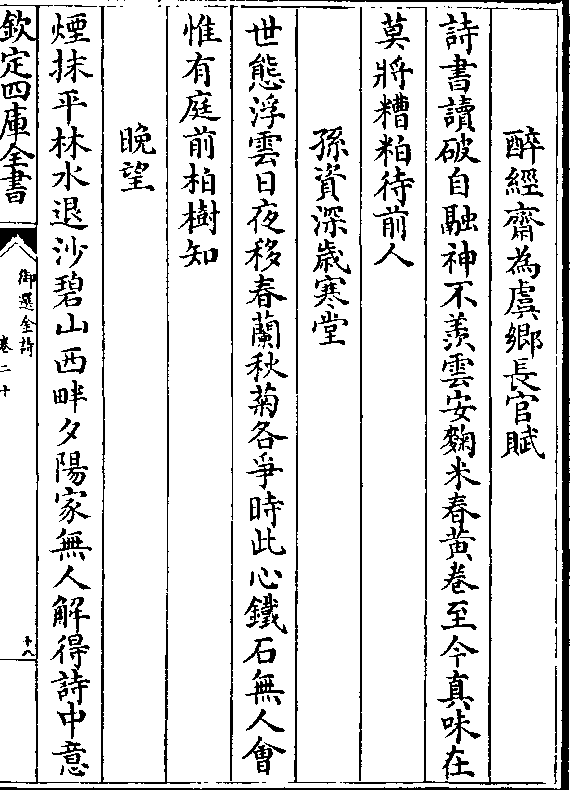 醉經齋為虞鄉長官賦
詩書讀破自融神不羨雲安麴米春黄卷至今真味在
莫將糟粕待前人
孫資深歳寒堂
世態浮雲日夜移春蘭秋菊各爭時此心鐵石無人會
惟有庭前柏樹知
晩望
煙抹平林水退沙碧山西畔夕陽家無人解得詩中意
欽定四庫全書
御選金詩
卷二十
十八